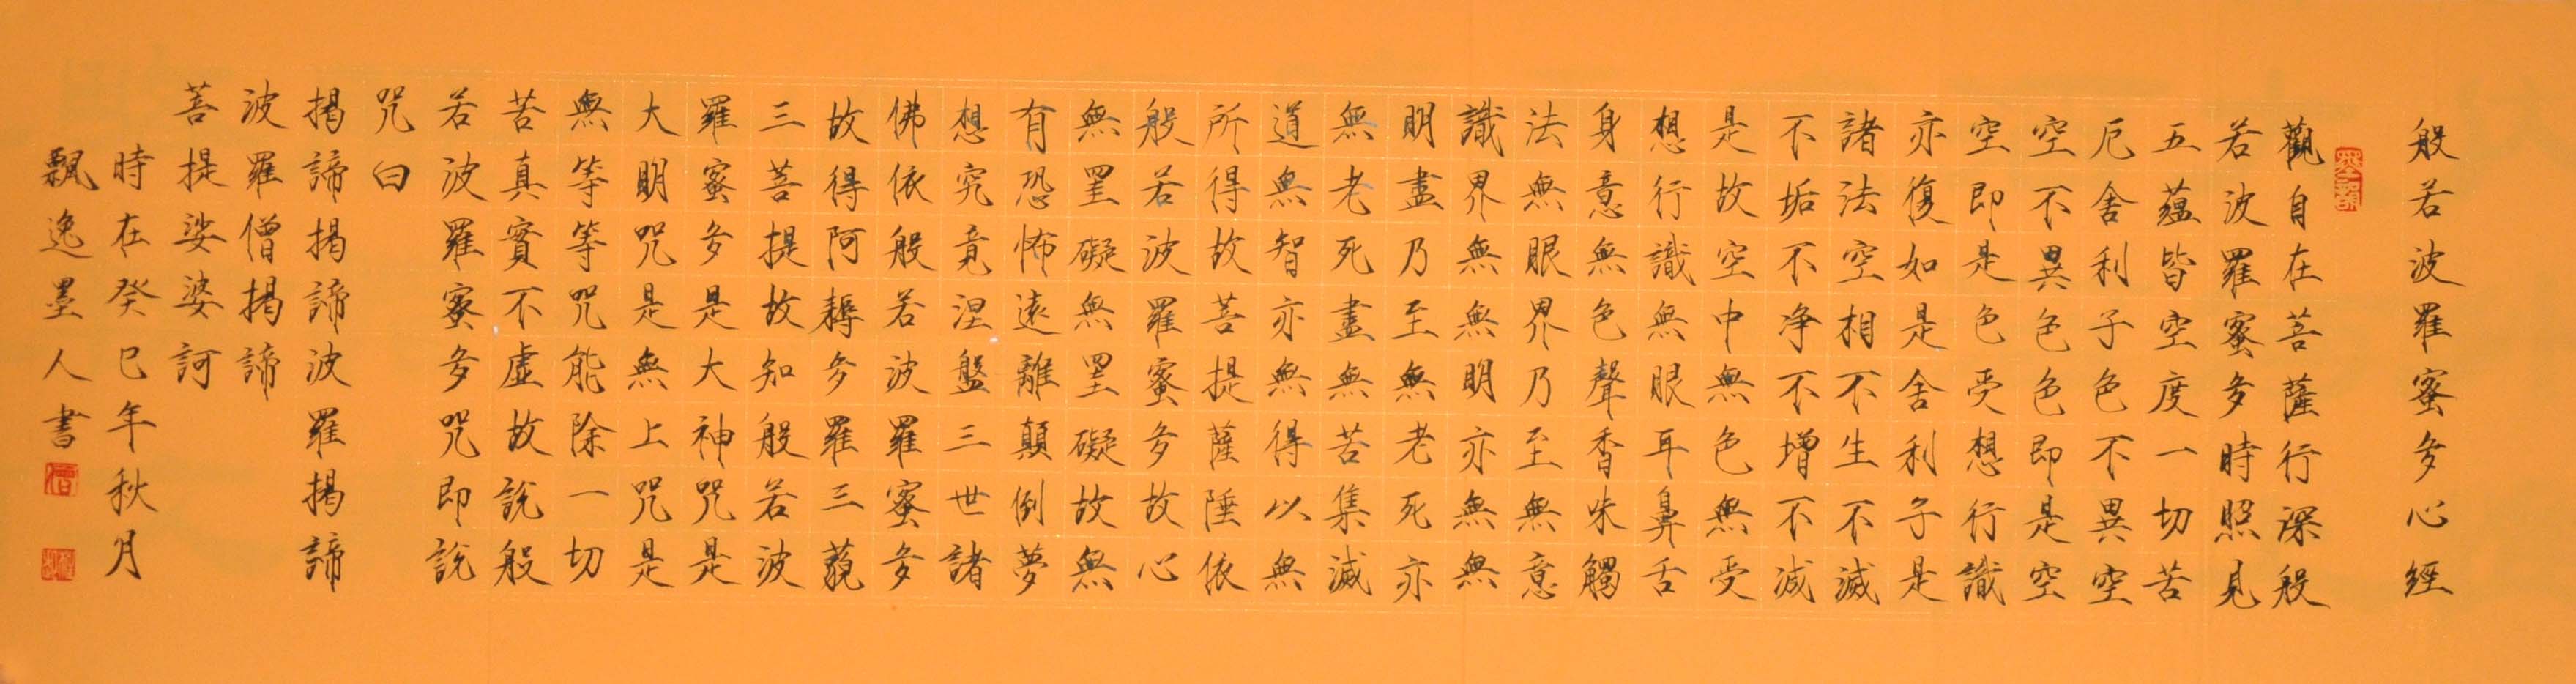 般若波羅蜜多心經
觀自在菩薩行深般
若波羅蜜多時照見
五蘊皆空度一切苦
厄舍利子色不異空
空不異色色即是空
空即是色受想行識
亦復如是舍利子是
諸法空相不生不滅
不垢不净不增不减
是故空中無色無受
想行識無眼耳鼻舌
身意無色聲香味觸
法無眼界乃至無意
識界無無明亦無無
明盡乃至無老死亦
無老死盡無苦集滅
道無智亦無得以無
所得故菩提薩陲依
般若波羅蜜多故心
無罣礙無罣礙故無
有恐怖遠離顛倒夢
想究竟涅盤三世諸
佛依般若波羅蜜多
故得阿耨多羅三藐
三菩提故知般若波
羅蜜多是大神咒是
大明咒是無上咒是
無等等咒能除一切
苦真實不虛故說般
若波羅蜜多咒即說
咒曰
揭諦揭諦波羅揭諦
波羅僧揭諦
菩提娑婆訶
時在癸巳年秋月
飄逸墨人書